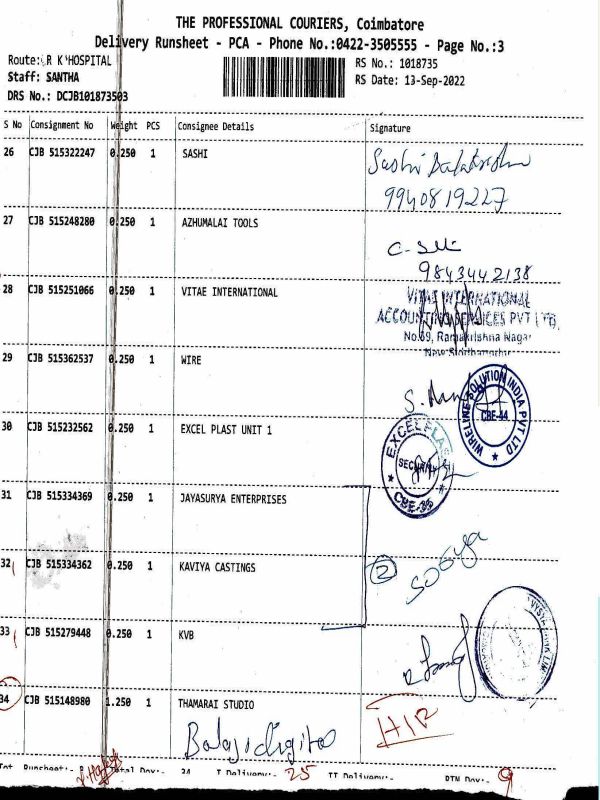 THE PROFESSIONAL COURIERS, Coimbatore
Delivery Runsheet - PCA - Phone No.:0422-3505555 - Page No.:3
Route: R K HOSPITAL
RS No.: 1018735
Staff: SANTHA
RS Date: 13-Sep-2022
DRS No.: DCJB101873503
S No Consignment No Weight PCS Consignee Details Signature
26 CJB 515322247 0.250 1 SASHI
Sashi Balakrishn
9940819227
27 CJB 515248280 0.250 1 AZHUMALAI TOOLS
9843442138
28 CJB 515251066 0.250 1 VITAE INTERNATIONAL
VITAE INTERNATIONAL
ACCOUNTING SERVICES PVT LTD.
No.69, Ramakrishna Nagar
29 CJB 515362537 0.250 1 WIRE
WIRELINE SOLUTION INDIA PVT LTD
CBE-44
30 CJB 515232562 0.250 1 EXCEL PLAST UNIT 1
EXCEL PLAS
SECURITY
CBE-35
31 CJB 515334369 0.250 1 JAYASURYA ENTERPRISES
32 CJB 515334362 0.250 1 KAVIYA CASTINGS
2
33 CJB 515279448 0.250 1 KVB
34 CJB 515148980 1.250 1 THAMARAI STUDIO
Balaji digital
34 T Delivery:- 25 TT Delivery:- RTN Dov:- 9